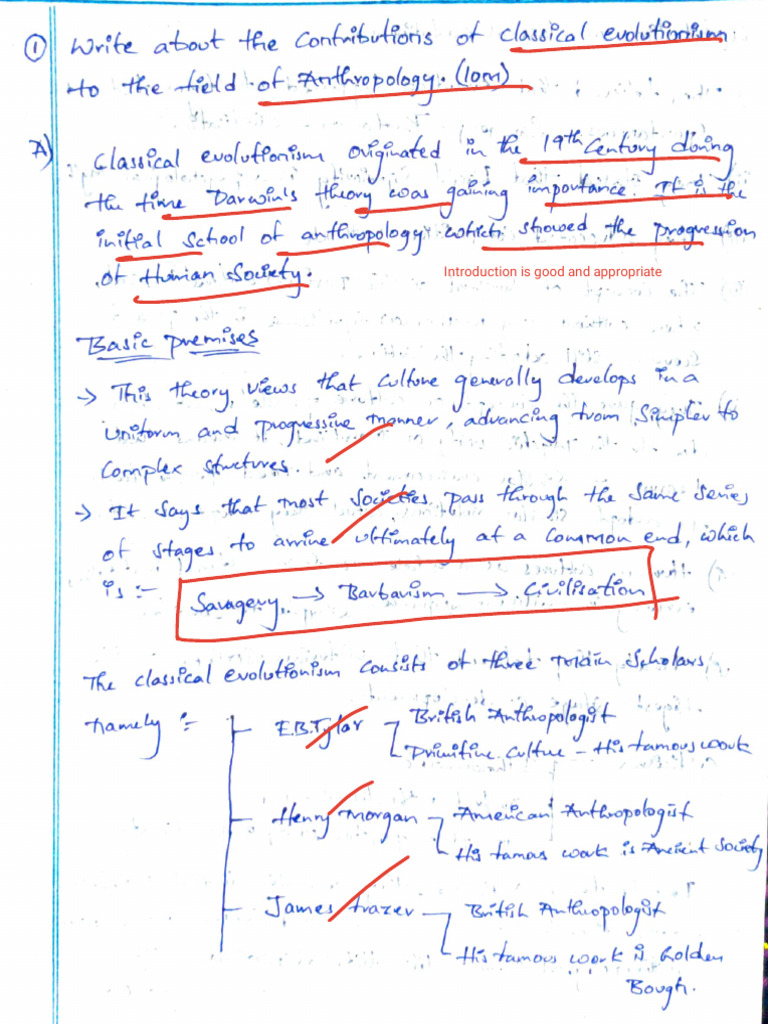 ① Write about the Contributions of classical evolutionism
to the field of Anthropology. (10m)
A) Classical evolutionism originated in the 19th Century during
the time Darwin's theory was gaining importance. It is the
initial School of anthropology which showed the progression
of Human Society.
Introduction is good and appropriate
Basic premises
→ This theory views that Culture generally develops in a
uniform and progressive manner, advancing from Simpler to
Complex structures.
→ It Says that most Societies pass through the Same Series
of stages to arrive ultimately at a Common end, which
is :-
Savagery → Barbarism → Civilisation
The classical evolutionism Consists of three main Scholars
namely :-
E.B.Tylor
British Anthropologist
Primitive Culture - His famous work
Henry Morgan
American Anthropologist
His famous work is Ancient Society
James frazer
British Anthropologist
His famous work is Golden
Bough.